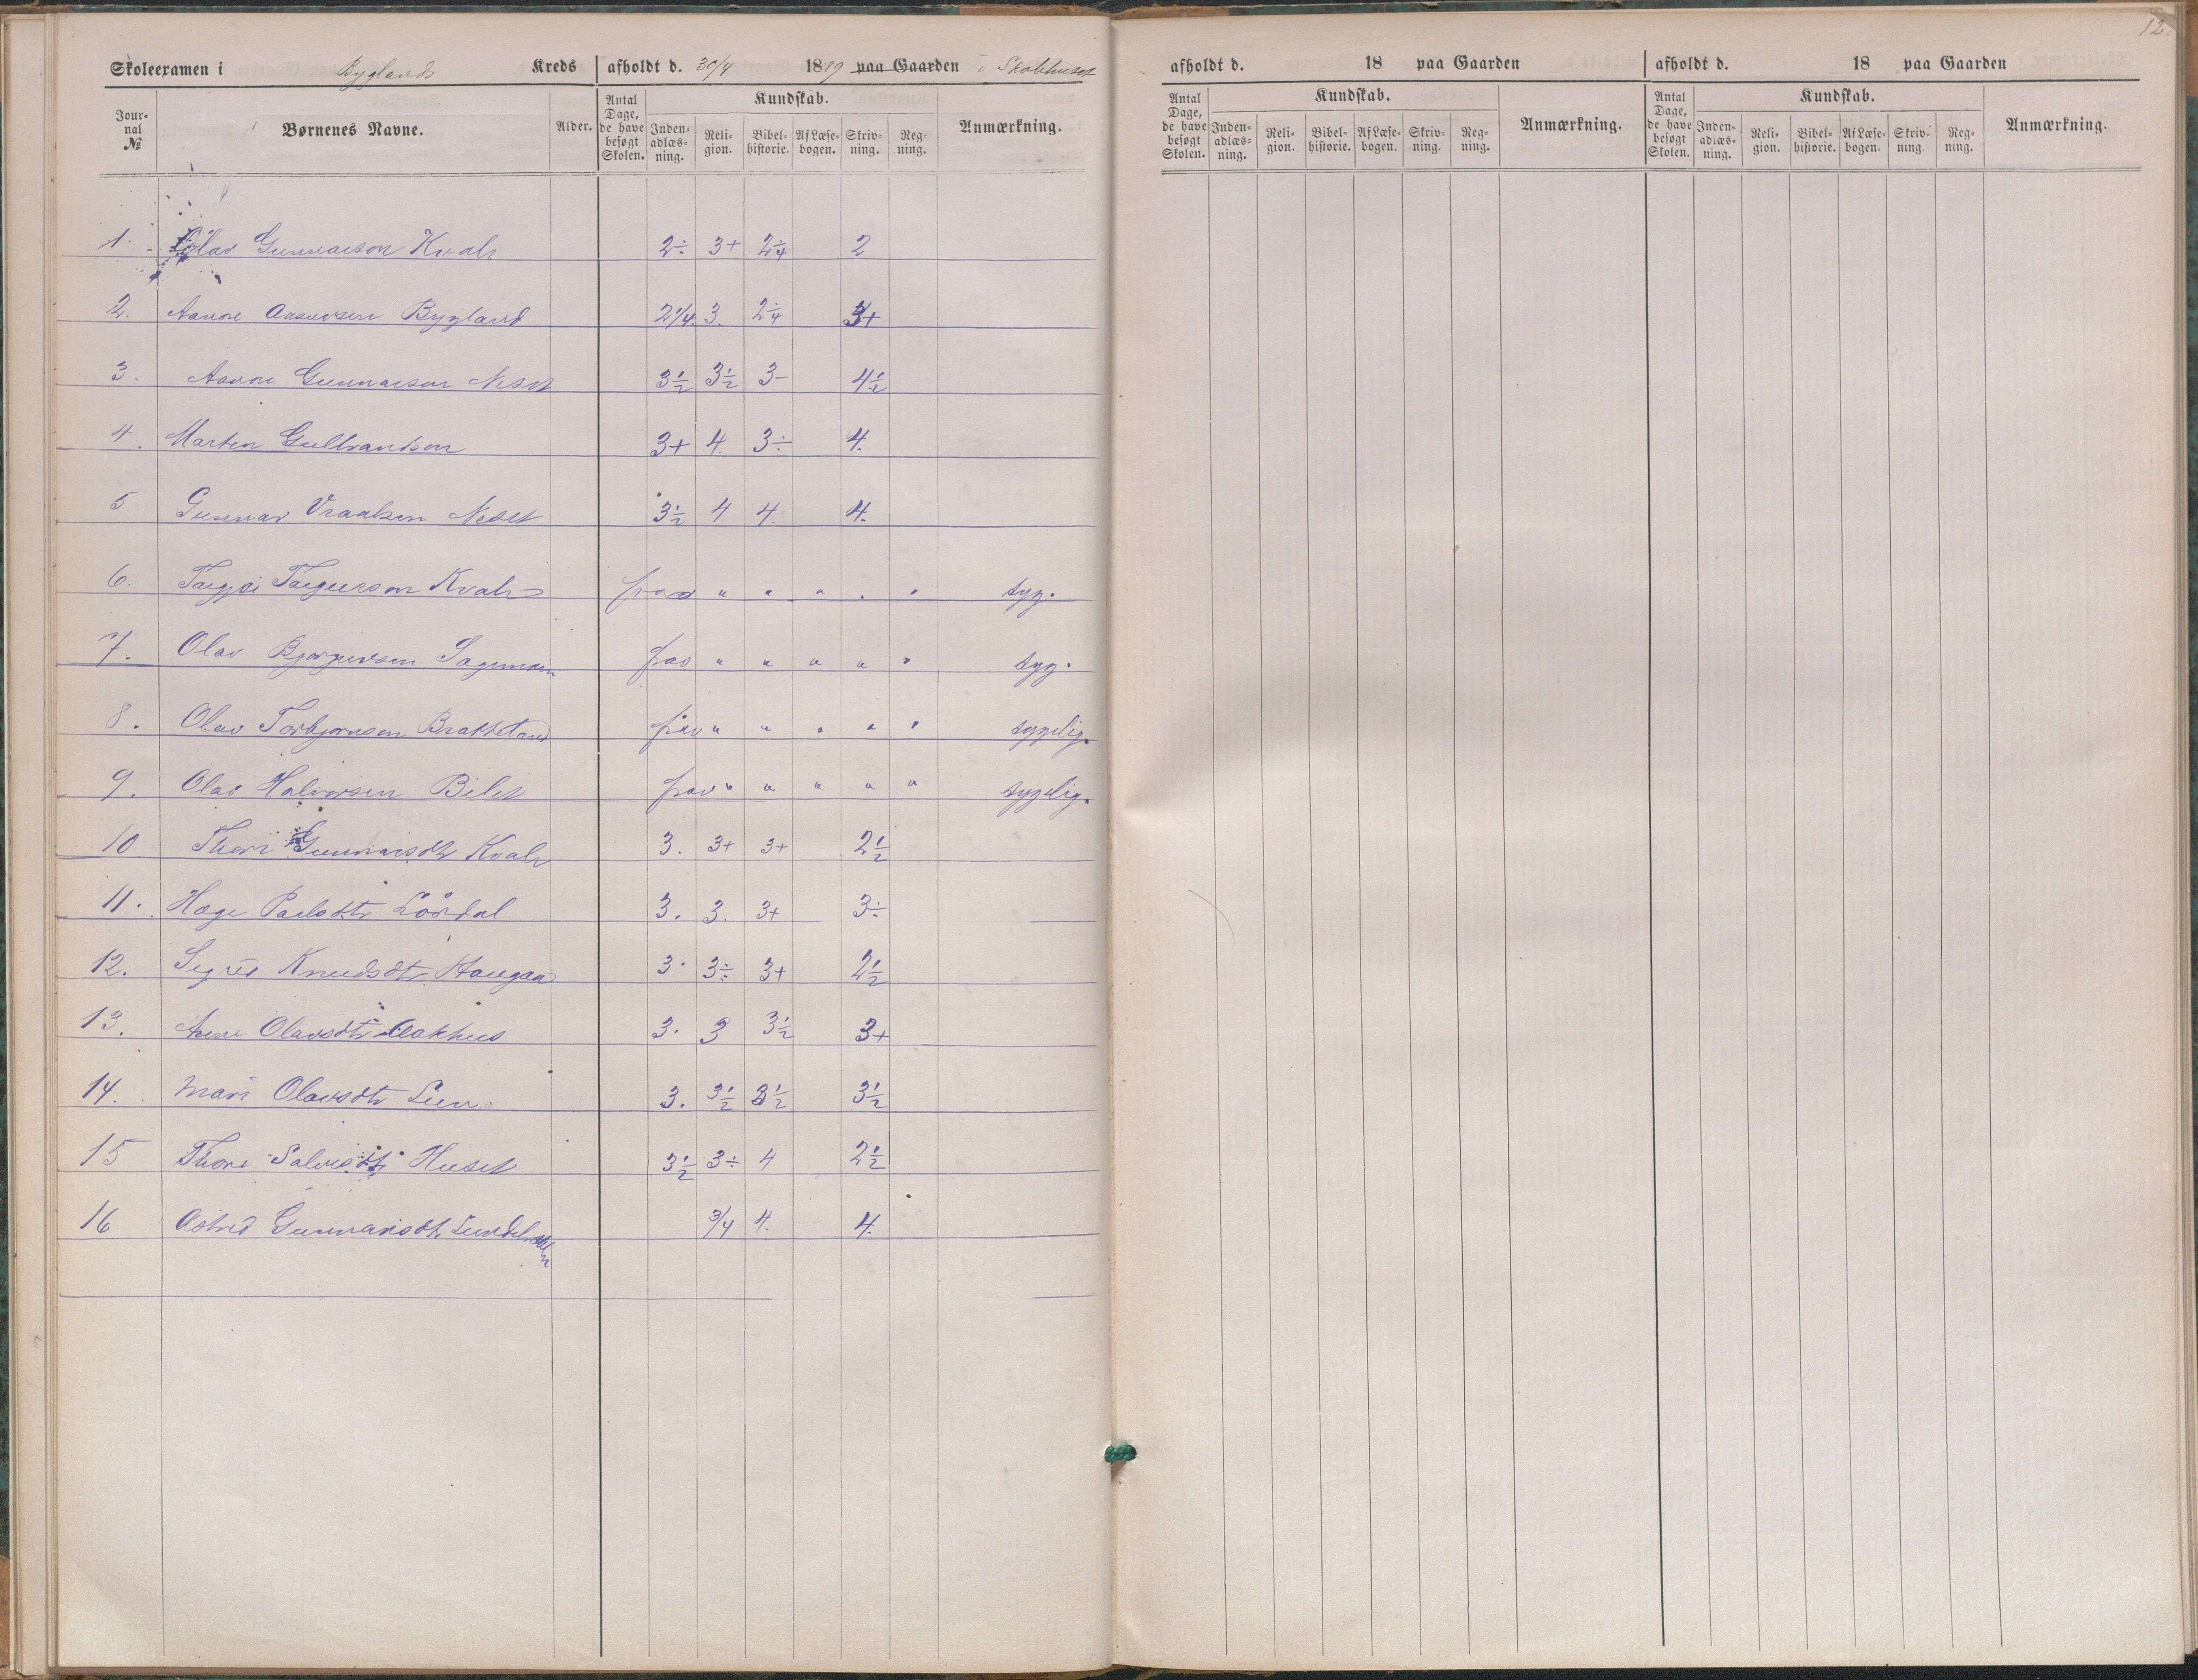 12.
Skoleexamen i Byglands Kreds afholdt d. 30/4 1889 paa Gaarden i Skolhuset
Journal № Børnenes Navne. Alder. Antal Dage, de have besøgt Skolen. Kundskab. Indenadlæsning. Religion. Bibelhistorie. Af Læsebogen. Skrivning. Regning. Anmærkning.
1. Olav Gunnarson Kvaln 2÷ 3+ 2¼ 2
2. Aanon Aasmrsen Bygland 2¼ 3. 2¼ 3+
3. Aanon Gunnarson Neset 3½ 3½ 3- 4½
4. Marten Gullvandson 3+ 4. 3÷ 4.
5 Gunnar Vraalson Neset 3½ 4 4. 4.
6. Targjei Targjerson Kvaln frav " " " " " syg.
7. Olav Bjørguvsen frav " " " " " syg.
8. Olav Torbjørnson Bratteland frav " " " " " sygelig.
9. Olav Halvorsen Bilet frav " " " " " sygelig.
10 Thore Gunnarsdtr Kvaln 3. 3+ 3+ 2½
11. Hæge Paulsdtr Lørdal 3. 3. 3+ 3÷
12. Sigrid Knudsdtr Haugaa 3. 3÷ 3+ 2½
13. Anne Olavsdtr Aakhus 3. 3 3½ 3+
14. Mari Olavsdtr Lien 3. 3½ 3½ 3½
15 Thone Salvisdtr Huset 3½ 3÷ 4 2½
16 Astrid Gunnarsdtr 3/4 4. 4.
afholdt d. 18 paa Gaarden afholdt d. 18 paa Gaarden
Antal Dage, de have besøgt Skolen. Kundskab. Indenadlæsning. Religion. Bibelhistorie. Af Læsebogen. Skrivning. Regning. Anmærkning.
Antal Dage, de have besøgt Skolen. Kundskab. Indenadlæsning. Religion. Bibelhistorie. Af Læsebogen. Skrivning. Regning. Anmærkning.